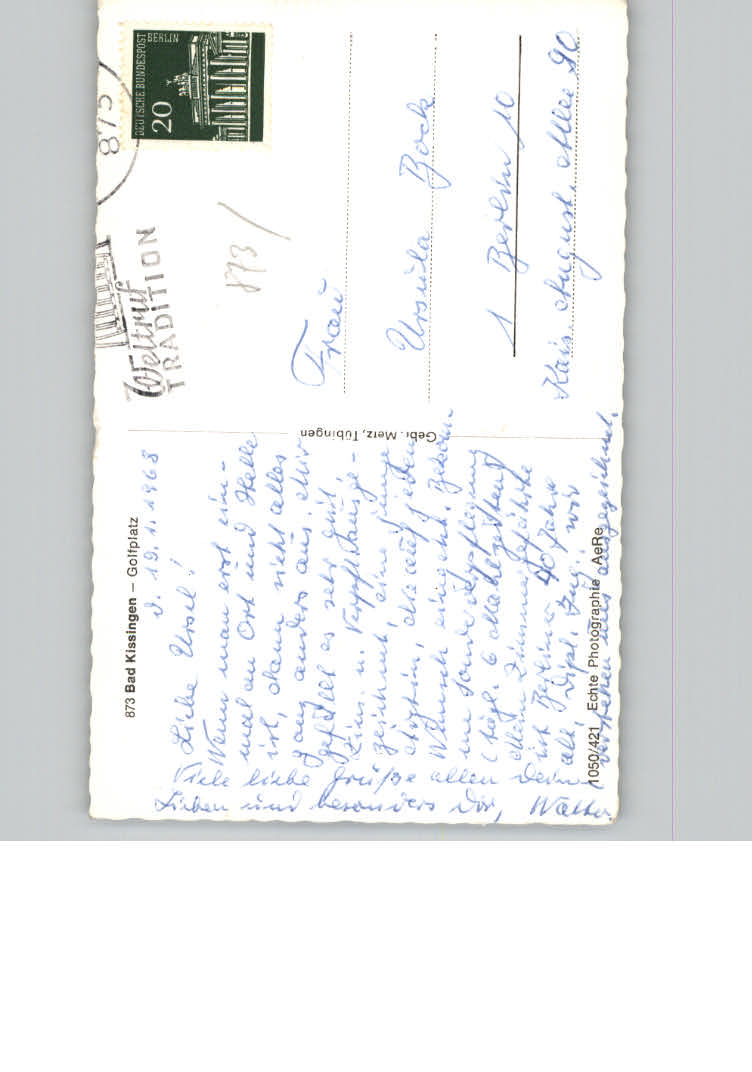 873 Bad Kissingen – Golfplatz
d. 19.1.1968
Liebe Ursel!
Wenn man erst ein-
mal an Ort und Stelle
ist, dann sieht alles
ganz anders aus. Mir
gefällt es sehr gut,
Zim. u. Verpfl. ausge-
zeichnet, eine junge
Ärztin, die auf jeden
Wunsch eingeht. Bekam
eine Sonderverpflegung
(tägl. 6 Mahlzeiten)
Mein Zimmergefährte
ist Berliner 40 Jahre
alt Dipl. Ing. wir
verstehen uns ausgezeichnet.
Viele liebe Grüße allen Deinen
Lieben und besonders Dir, Walter
1050/421 Echte Photographie AeRe
Gebr. Metz, Tübingen
DEUTSCHE BUNDESPOST BERLIN
20
873
Weltruf
TRADITION
873/
Frau
Ursula Bock
1 Berlin 10
Kais. August. Allee 90